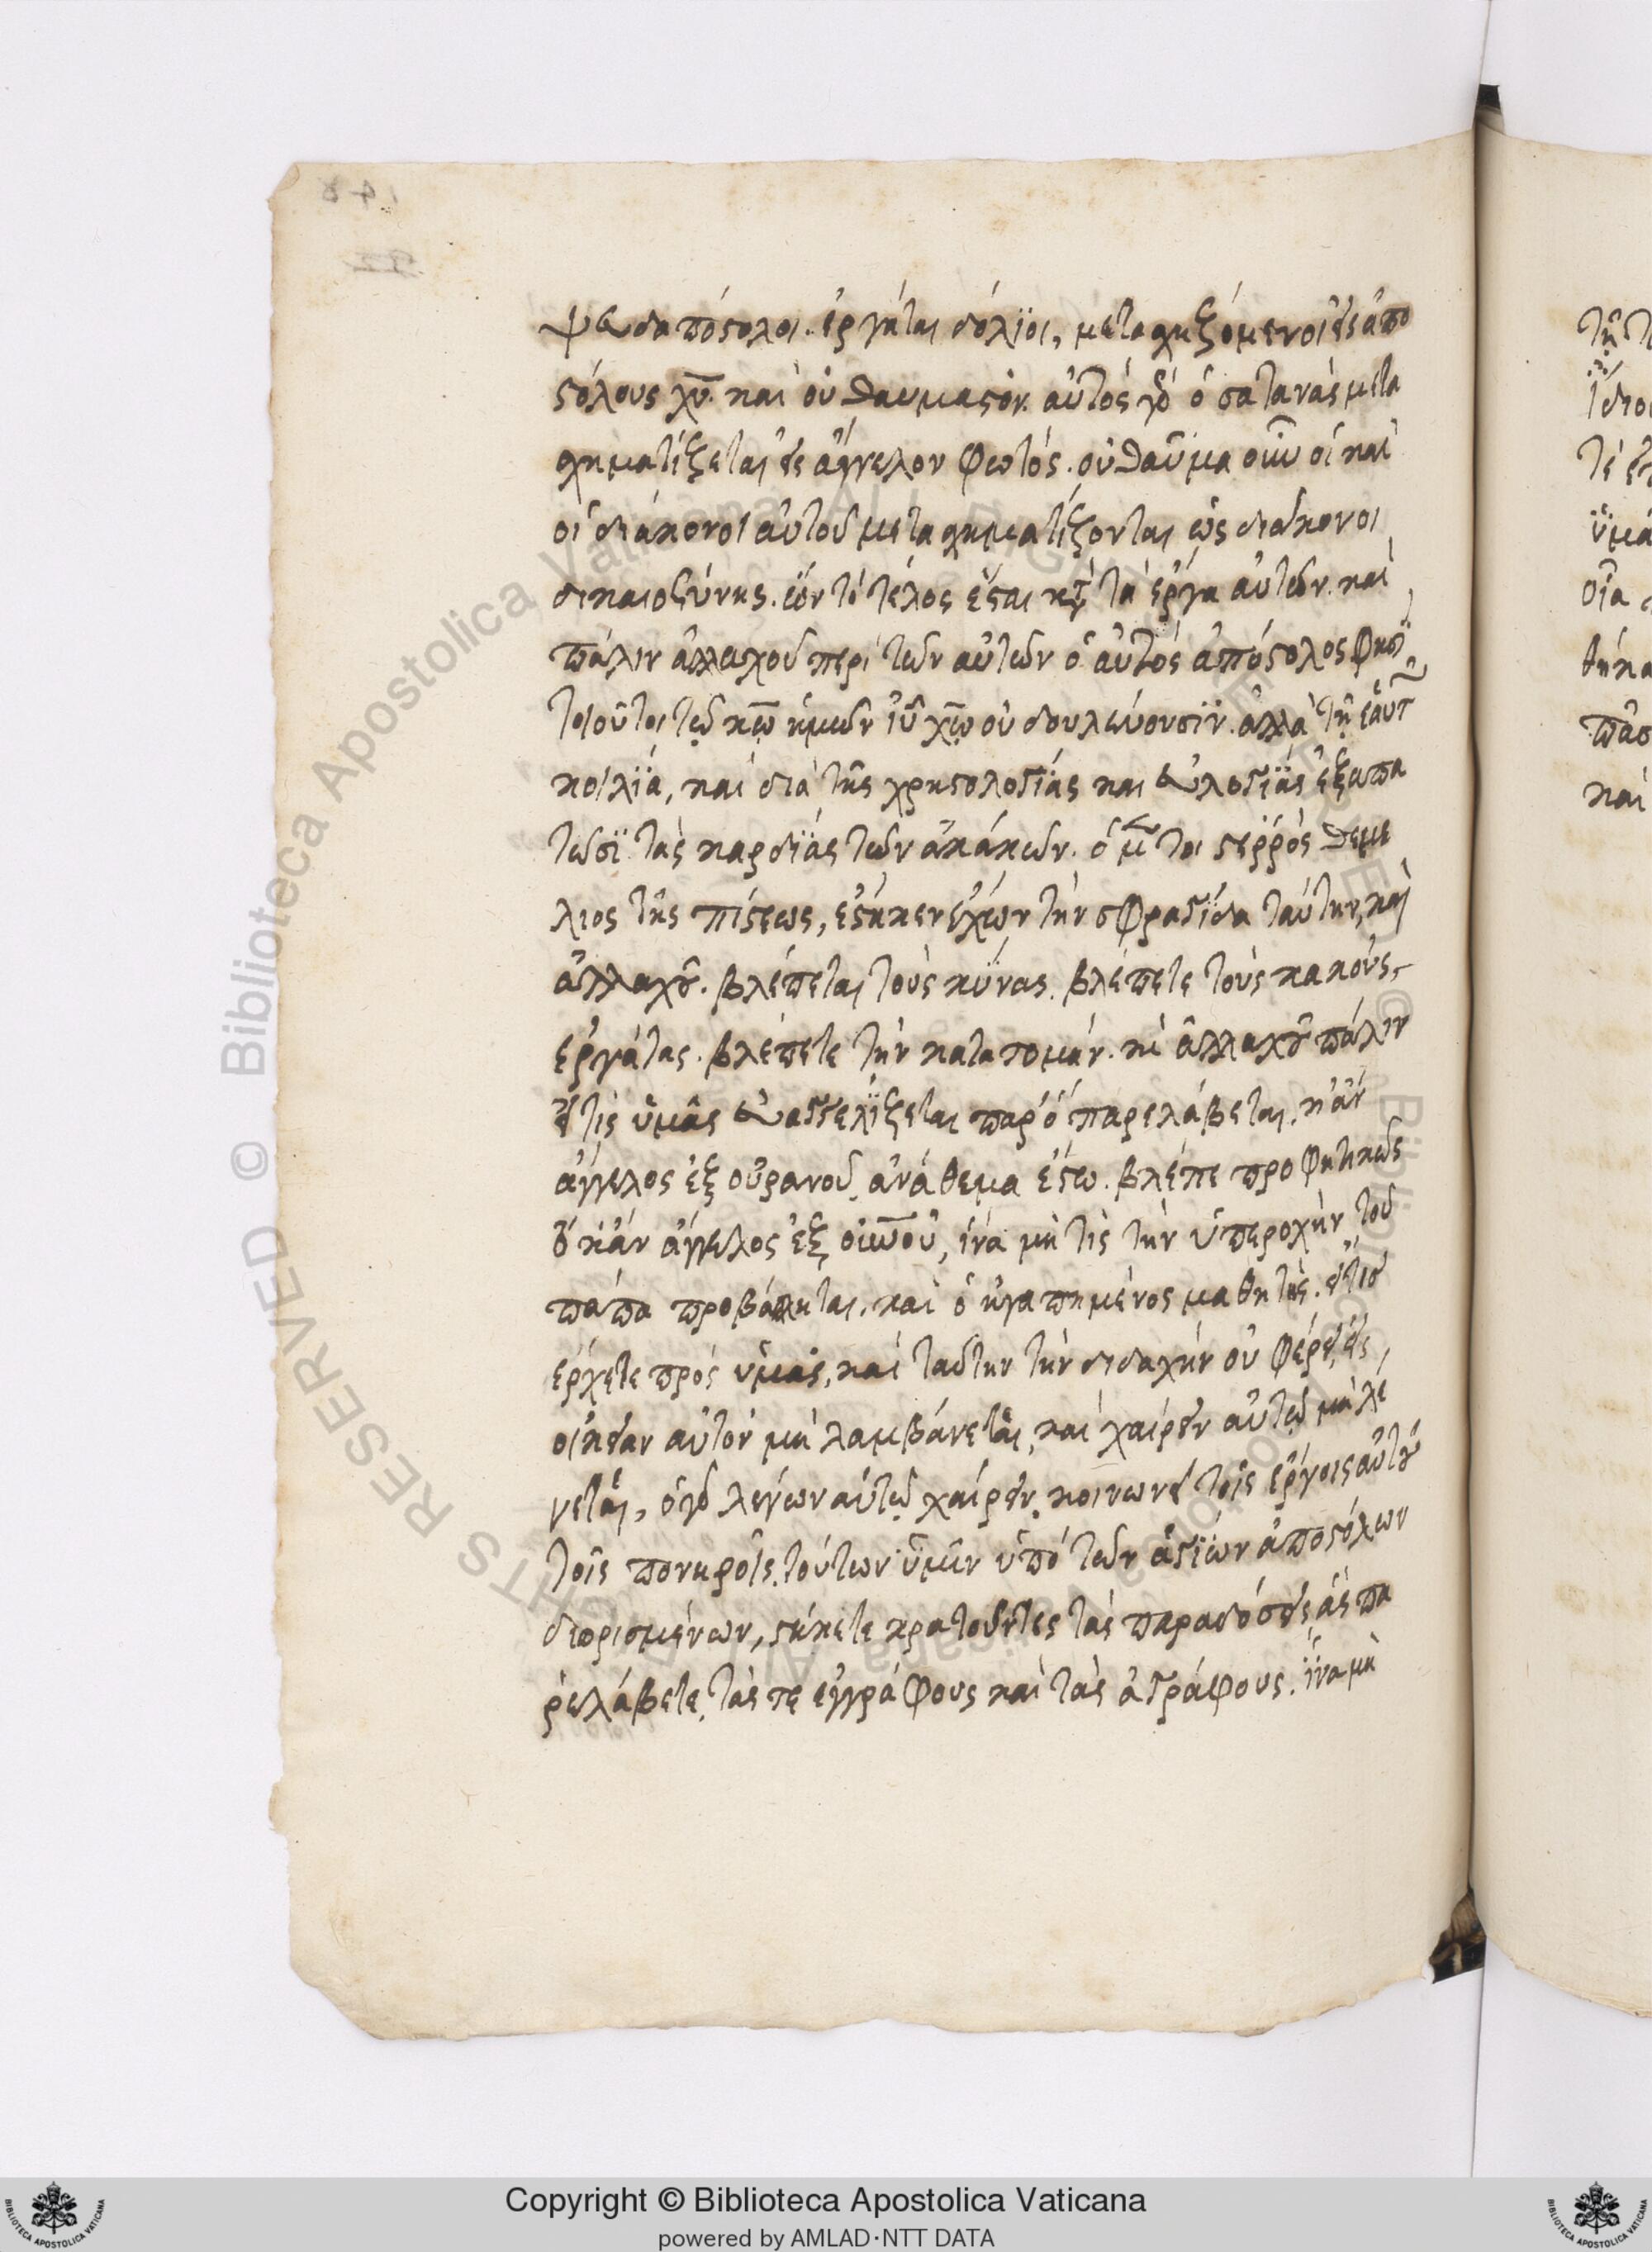 ψευδαπόστολοι. ἐργάται δόλϊοι, μετασχηζόμενοι εἰς ἀπο
στόλους χυ. καὶ οὐ θαυμαστόν. αὐτὸς γὰρ ὁ σατανὰς μετα
σχηματίζεται εἰς ἄγγελον φωτός. οὐ θαῦμα οὖν εἰ καὶ
οἱ διάκονοι αὐτοῦ μετασχηματίζονται ὡς διάκονοι
δικαιοσύνης. ὧν τὸ τέλος ἔσται κατὰ τὰ ἔργα αὐτῶν. καὶ
πάλιν ἀλλαχοῦ περὶ τῶν αὐτῶν ὁ αὐτὸς ἀπόστολος φησὶ
τοιοῦτοι τῷ κῳ ἡμῶν ιυ χῳ οὐ δουλεύουσϊν. ἀλλὰ τῇ ἑαυτῶν
κοιλϊά, καὶ διὰ τῆς χρηστολογίας καὶ εὐλογϊάς ἐξαπα
τῶσϊ τὰς καρδϊάς τῶν ἀκάκων. ὁ μέντοι στερρὸς θεμε
λιος τῆς πίστεως, ἕστηκεν ἔχων τὴν σφραγίδα ταύτην, καὶ
ἀλλαχοῦ. βλέπεται τοὺς κύνας. βλέπετε τοὺς κακοὺς
ἐργάτας. βλέπετε τὴν κατατομήν. καὶ ἀλλαχοῦ πάλιν
εἴ τις ὑμᾶς εὐαγγελϊζεται παρ' ὃ παρελάβεται. κἂν
ἄγγελος ἐξ οὐρανοῦ, ἀνάθεμα ἔστω. βλέπε προφητικῶς
τὸ κἂν ἄγγελος ἐξ οὐνοῦ, ἵνα μή τις τὴν ὑπεροχὴν τοῦ
πάπα προβάλληται. καὶ ὁ ἠγαπημένος μαθητὴς. εἴ τισ
ἔρχετε πρὸς ὑμᾶς, καὶ ταύτην τὴν διδαχὴν οὐ φέρει, εἰς
οἰκείαν αὐτὸν μὴ λαμβάνεται, καὶ χαίρειν αὐτῷ μὴ λέ
γεται, ὁ γὰρ λέγων αὐτῷ χαίρειν, κοινωνεῖ τοῖς ἔργοις αὐτοῦ
τοῖς πονηροῖς. τούτων ὑμῖν ὑπὸ τῶν ἁγϊών ἀποστόλων
διορισμένων, στήκετε κρατοῦντες τὰς παραδόσεις, ἃς πα
ρελάβετε, τάς τε ἐγγράφους καὶ τὰς ἀγράφους. ἵνα μὴ
Copyright © Biblioteca Apostolica Vaticana
powered by AMLAD·NTT DATA